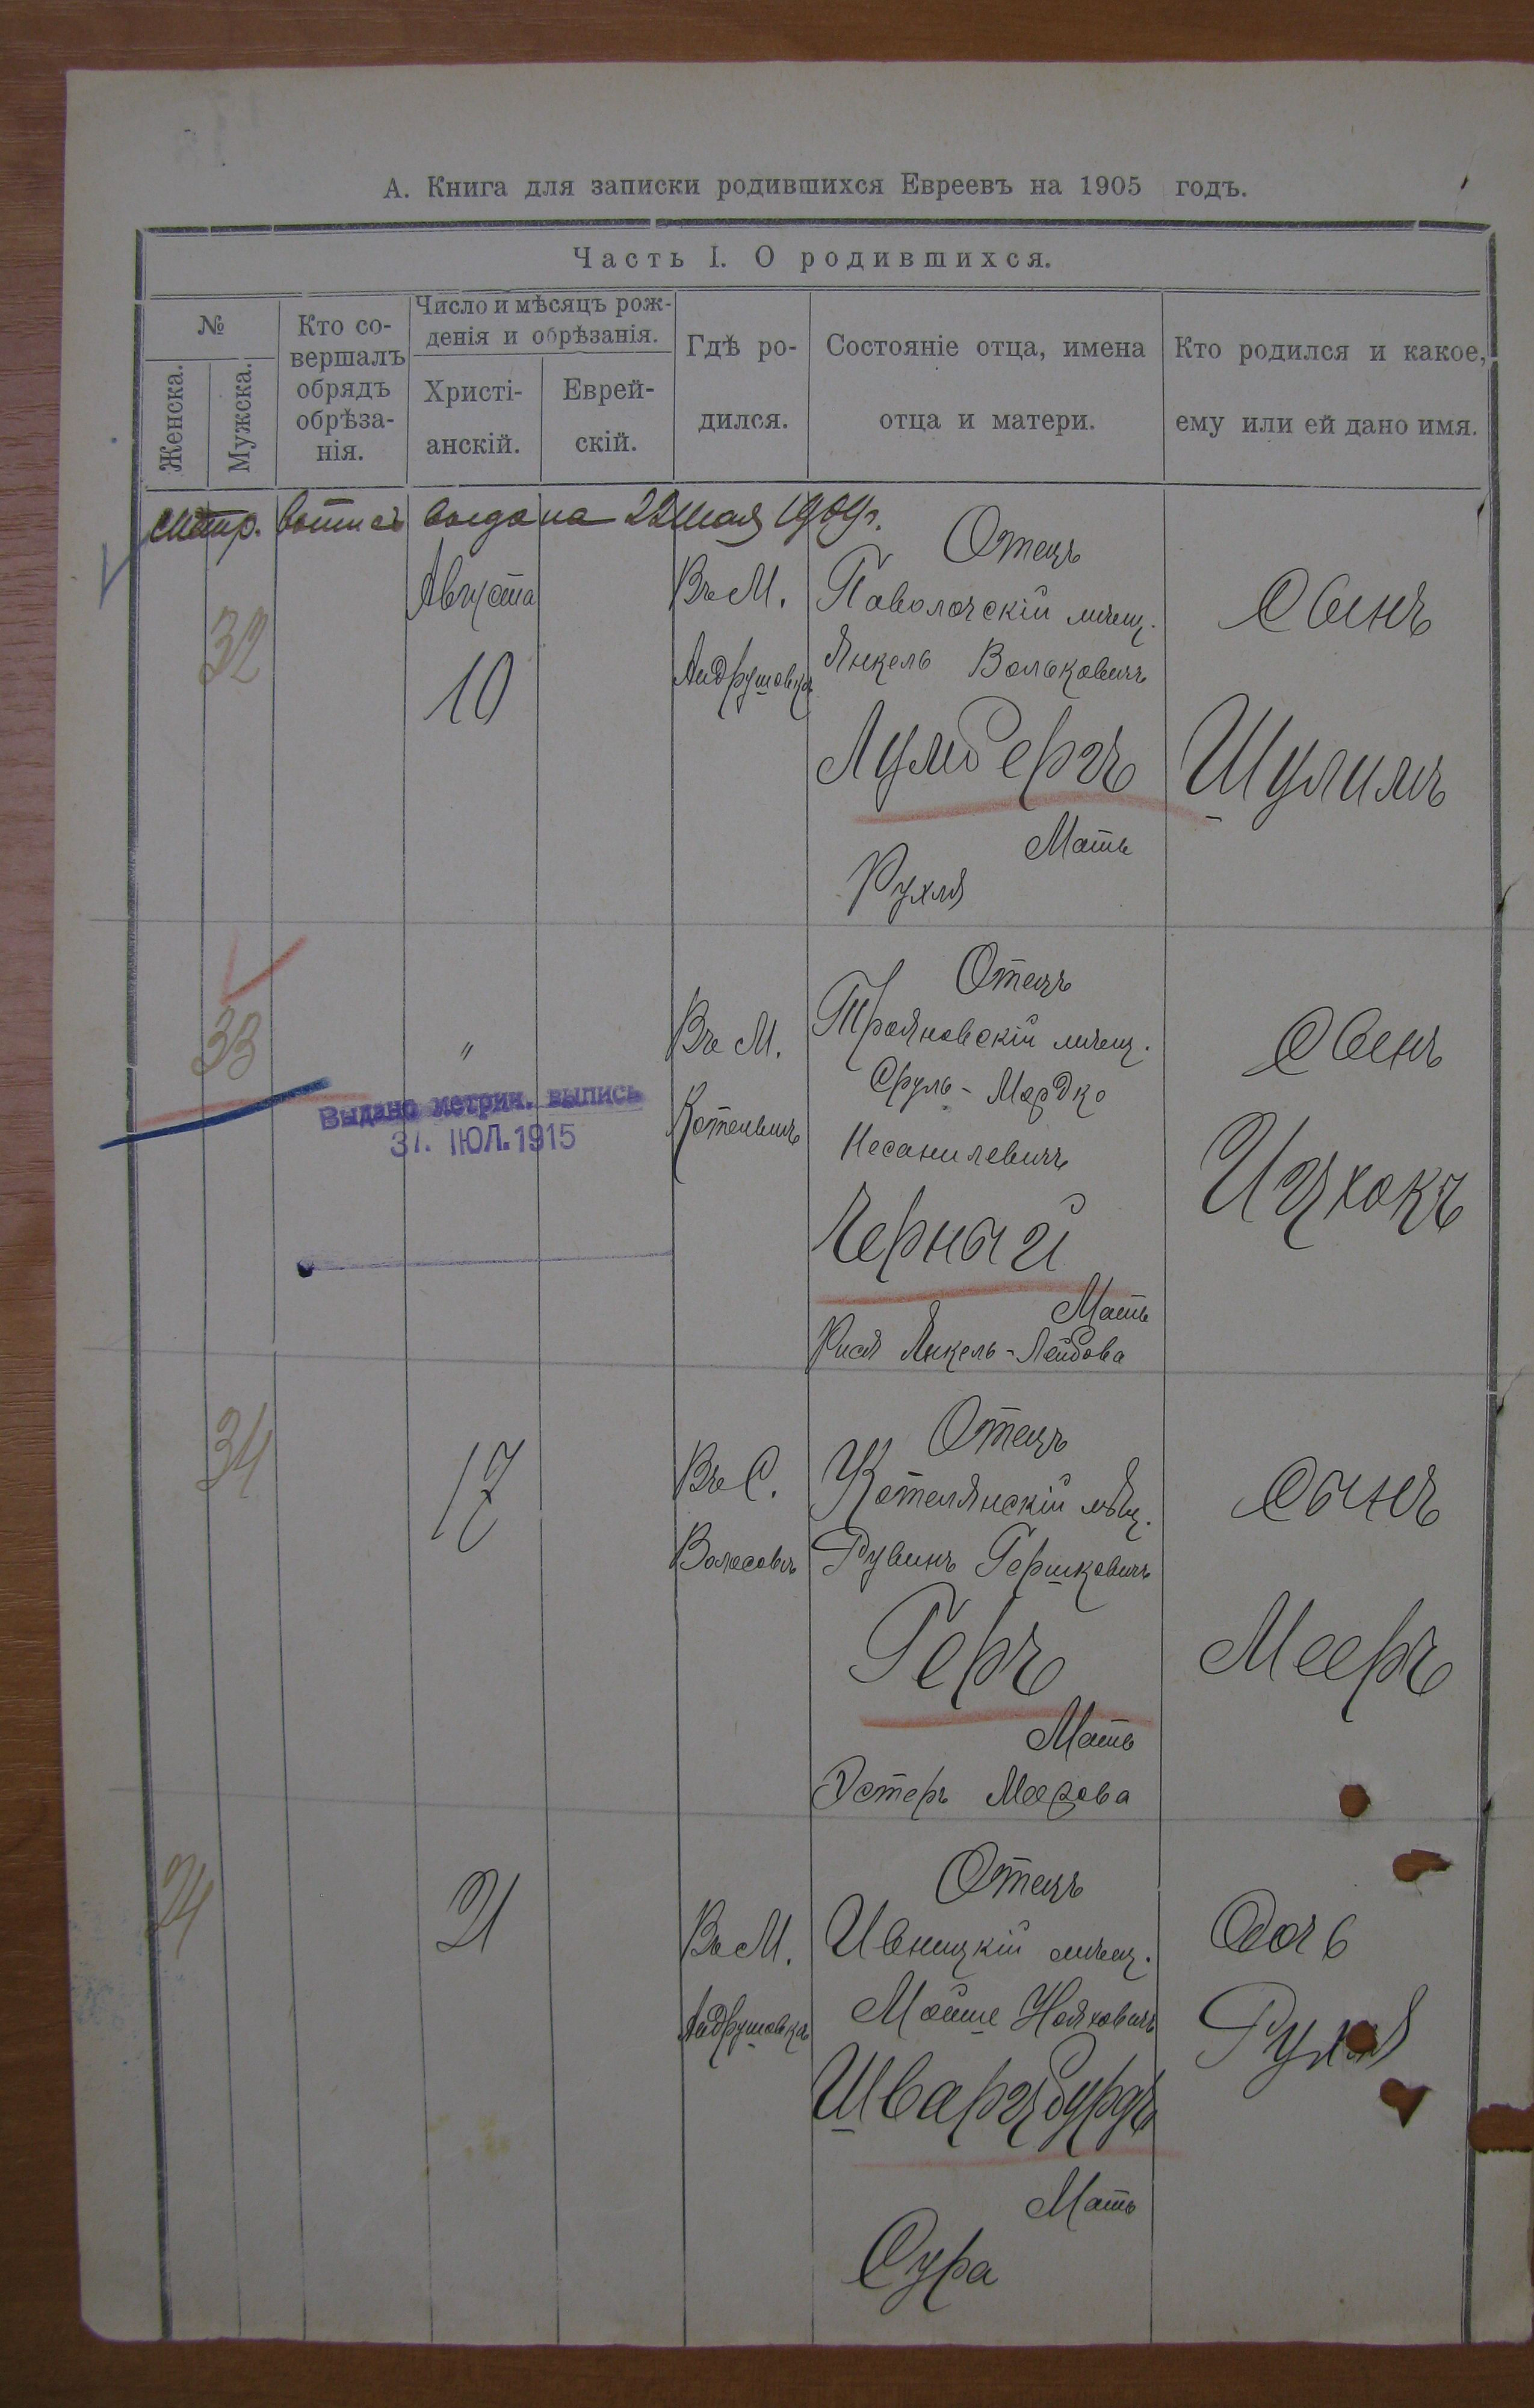 А. Книга для записки родившихся Евреевъ на 1905 годъ.
Часть I. О родившихся.
№
Женска.
Мужска.
Кто со-
вершалъ
обрядъ
обрѣза-
нія.
Число и мѣсяцъ рож-
денія и обрѣзанія.
Христі-
анскій.
Еврей-
скій.
Гдѣ ро-
дился.
Состояніе отца, имена
отца и матери.
Кто родился и какое,
ему или ей дано имя.
Метр. выпись выдана 22 мая 1909 г.
32
Августа
10
Въ М.
Андрушовкѣ
Отецъ
Паволочскій мѣщ.
Янкель Вольковичъ
Лумберъ
Мать
Рухля
Сынъ
Шулимъ
33
"
Выдано метрич. выпись
31. ІЮЛ. 1915
Въ М.
Котельнѣ
Отецъ
Трояновскій мѣщ.
Сруль-Мордко
Несанелевичъ
Черный
Мать
Рися Янкель-Лейбова
Сынъ
Ицхокъ
34
17
Въ С.
Волосовѣ
Отецъ
Котелянскій мѣщ.
Рувинъ Гершковичъ
Геръ
Мать
Эстеръ Меерова
Сынъ
Мееръ
24
21
Въ М.
Андрушовкѣ
Отецъ
Ивницкій мѣщ.
Мойше Нояховичъ
Шварцбурдъ
Мать
Сура
Дочь
Рухля